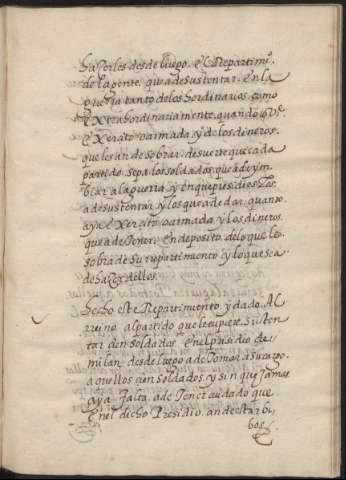 hazerles desde luego, el Repartimio.
de la gente, que a de sustentar, en la
guerra tanto de los hordinarios, como
extrahordinariamente, quando
exerçito o armada, y de los dineros,
que les an de sobrar, desuerte que cada
partido sepa los soldados que a de ym
biar a la guerra, y en que pressidios los
a de sustentar, y los que a de dar quando
aya exerçito o armada, y los dineros
que a de tener, en deposito, de lo que le
sobra de su rupartimiento, y lo que sea
de hazer dellos.
hecho este Repartimiento, y dado, Al
rreino, al partido que le cupiere, susten
tar çien soldados, en el presidio de
milan, desde luego a de tomar, a su cargo,
a aquellos çien soldados, y sin que jamas
aya falta, a de tener cuidado que
en el dicho Presidio, an de estar bi,
bos,